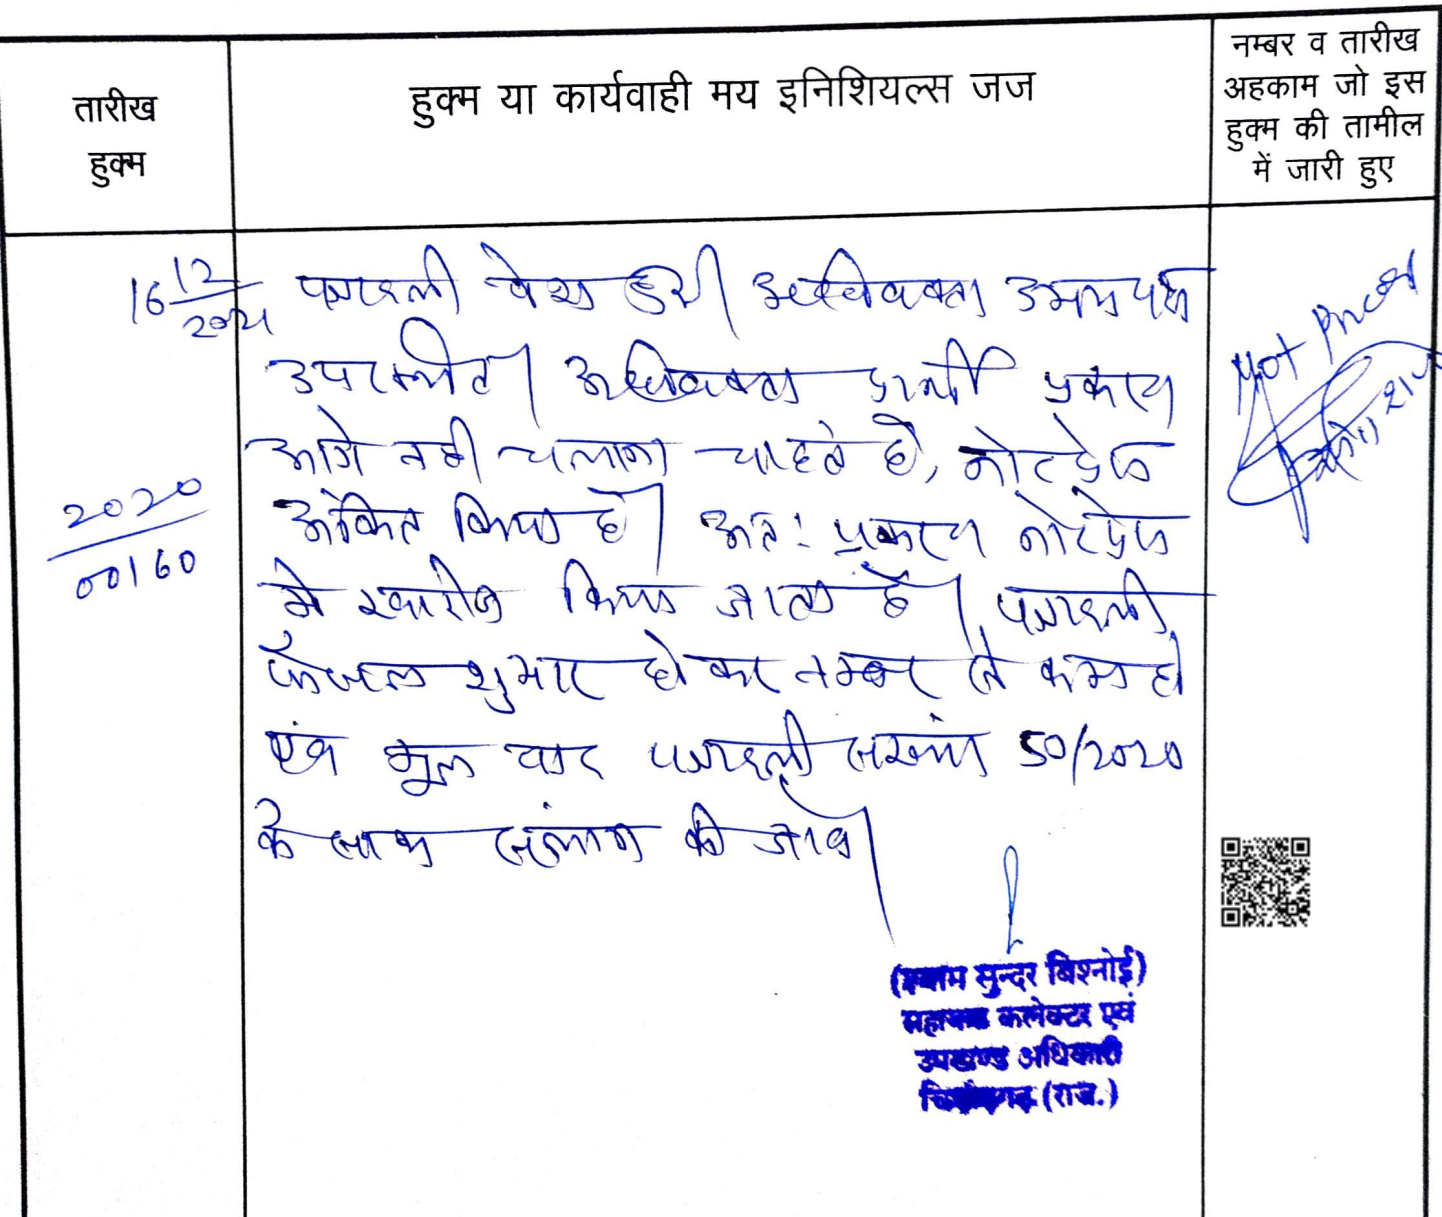 तारीख
हुक्म
हुक्म या कार्यवाही मय इनिशियल्स जज
नम्बर व तारीख
अहकाम जो इस
हुक्म की तामील
में जारी हुए
16 12/2021 पत्रावली पेश हुई। अधिवक्ता उभय पक्ष
उपस्थित। अधिवक्ता प्रार्थी प्रकरण
आगे नही चलाना चाहते है, नोटप्रेस
अंकित किया है। अतः प्रकरण नोटप्रेस
मे खारीज किया जाता है। पत्रावली
फैसल शुमार होकर नम्बर से कम हो
एंव मूल वाद पत्रावली संख्या 50/2020
के साथ संलग्न की जावे।
2020/00160
Not Pressed
(श्याम सुन्दर बिश्नोई)
सहायक कलेक्टर एवं
उपखण्ड अधिकारी
(राज.)